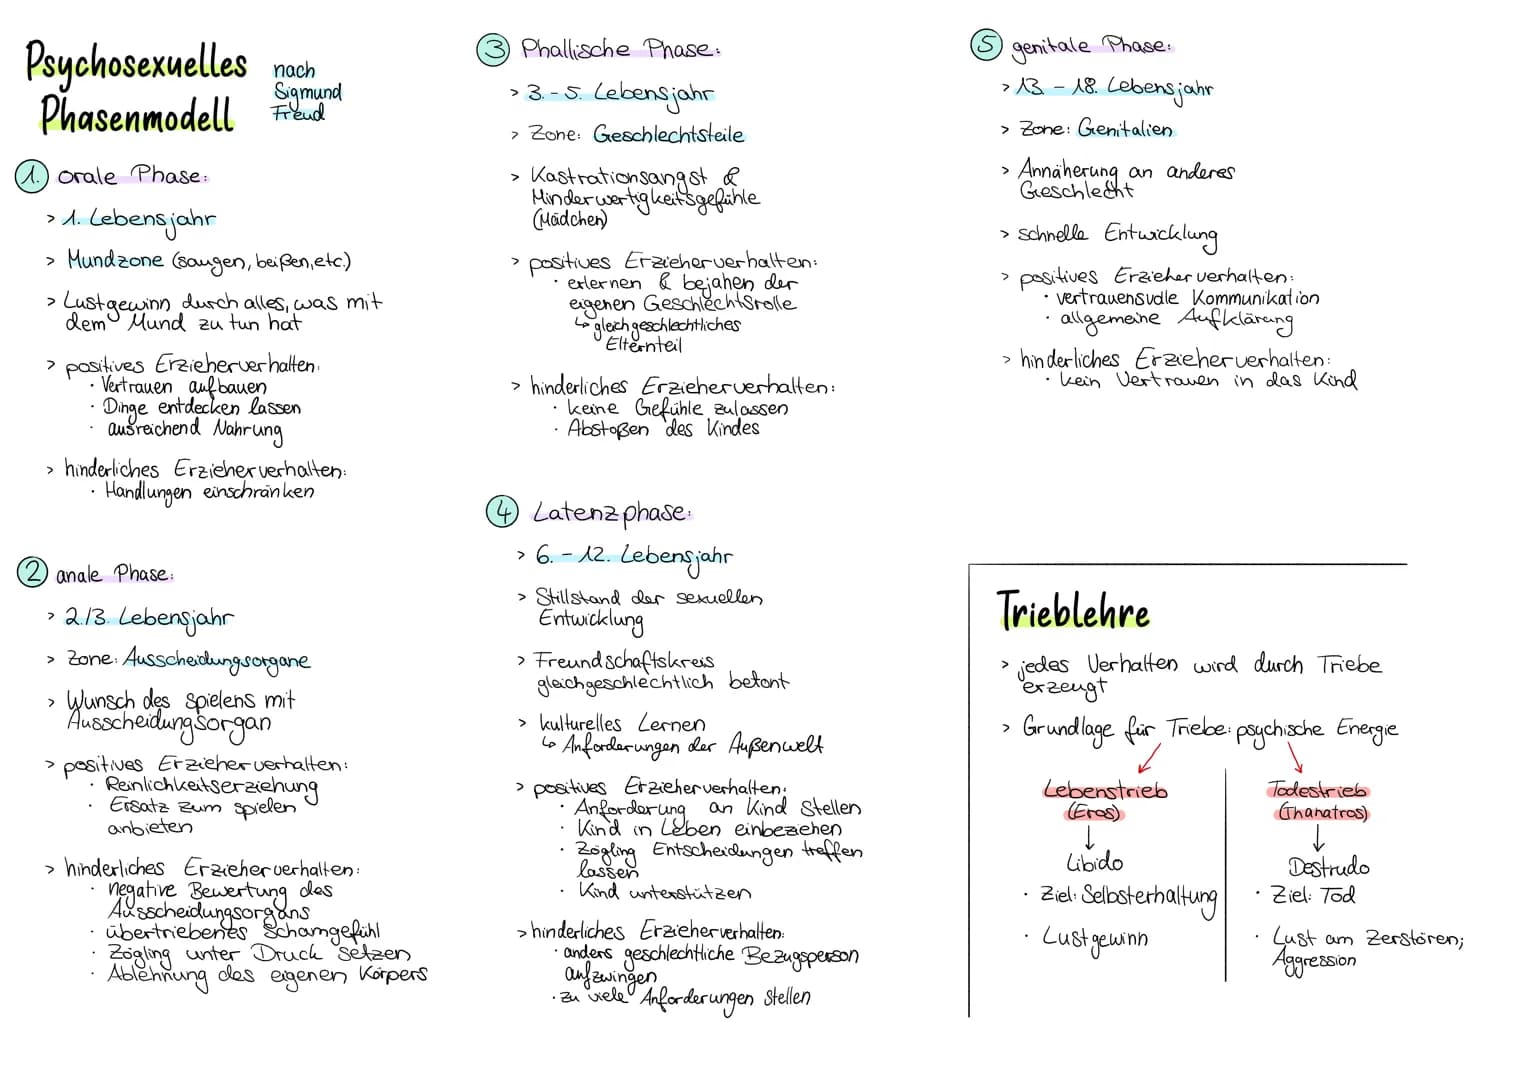 Psychosexuelles
Phasenmodell
nach
Sigmund
Freud
1. orale Phase:
> 1. Lebensjahr
> Mundzone (saugen, beißen, etc.)
> Lustgewinn durch alles, was mit
dem Mund zu tun hat
> positives Erzieherverhalten:
· Vertrauen aufbauen
· Dinge entdecken lassen
· ausreichend Nahrung
> hinderliches Erzieherverhalten:
· Handlungen einschränken
2 anale Phase:
> 2./3. Lebensjahr
> Zone: Ausscheidungsorgane
> Wunsch des spielens mit
Ausscheidungsorgan
> positives Erzieherverhalten:
· Reinlichkeitserziehung
· Ersatz zum spielen
anbieten
> hinderliches Erzieherverhalten:
· negative Bewertung des
Ausscheidungsorgans
· übertriebenes Schamgefühl
· Zögling unter Druck setzen
· Ablehnung des eigenen Körpers
3 Phallische Phase:
> 3.-5. Lebensjahr
> Zone: Geschlechtsteile
> Kastrationsangst &
Minderwertigkeitsgefühle
(Mädchen)
> positives Erzieherverhalten:
· erlernen & bejahen der
eigenen Geschlechtsrolle
↳ gleichgeschlechtliches
Elternteil
> hinderliches Erzieherverhalten:
· keine Gefühle zulassen
· Abstoßen des Kindes
4 Latenzphase:
> 6.-12. Lebensjahr
> Stillstand der sexuellen
Entwicklung
> Freundschaftskreis
gleichgeschlechtlich betont
> kulturelles Lernen
↳ Anforderungen der Außenwelt
> positives Erzieherverhalten:
· Anforderung an Kind stellen
· Kind in Leben einbeziehen
· Zögling Entscheidungen treffen
lassen
· Kind unterstützen
> hinderliches Erzieherverhalten:
· anders geschlechtliche Bezugsperson
aufzwingen
· zu viele Anforderungen stellen
5 genitale Phase:
> 13 - 18. Lebensjahr
> Zone: Genitalien
> Annäherung an anderes
Geschlecht
> schnelle Entwicklung
> positives Erzieherverhalten:
· vertrauensvolle Kommunikation
· allgemeine Aufklärung
> hinderliches Erzieherverhalten:
· kein Vertrauen in das Kind
Trieblehre
> jedes Verhalten wird durch Triebe
erzeugt
> Grundlage für Triebe: psychische Energie
Lebenstrieb
(Eros)
↓
Libido
· Ziel: Selbsterhaltung
· Lustgewinn
Todestrieb
(Thanatros)
↓
Destrudo
· Ziel: Tod
· Lust am Zerstören;
Aggression